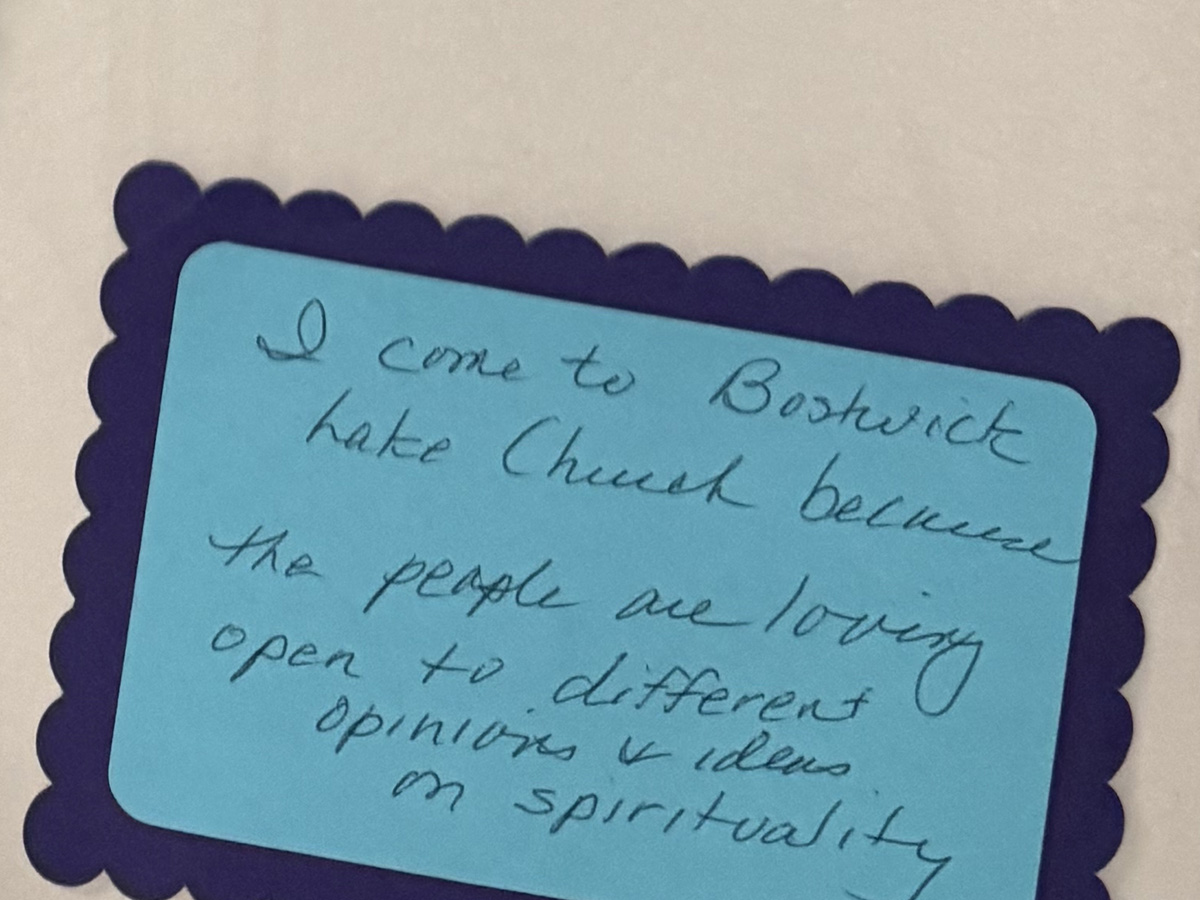 I come to Bostwick
Lake Church because
the people are loving
open to different
opinions & ideas
on spirituality